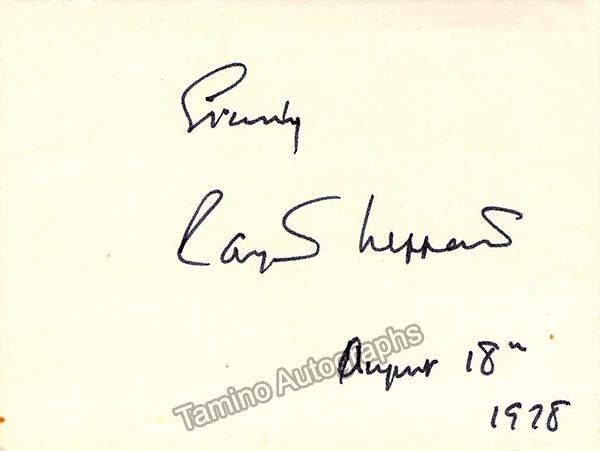 Sincerely
Raymond Leppard
August 18th
1978
Tamino Autographs